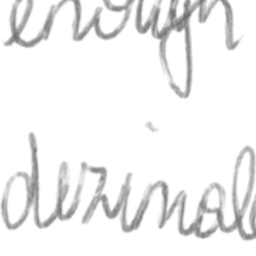 enough
dezinal